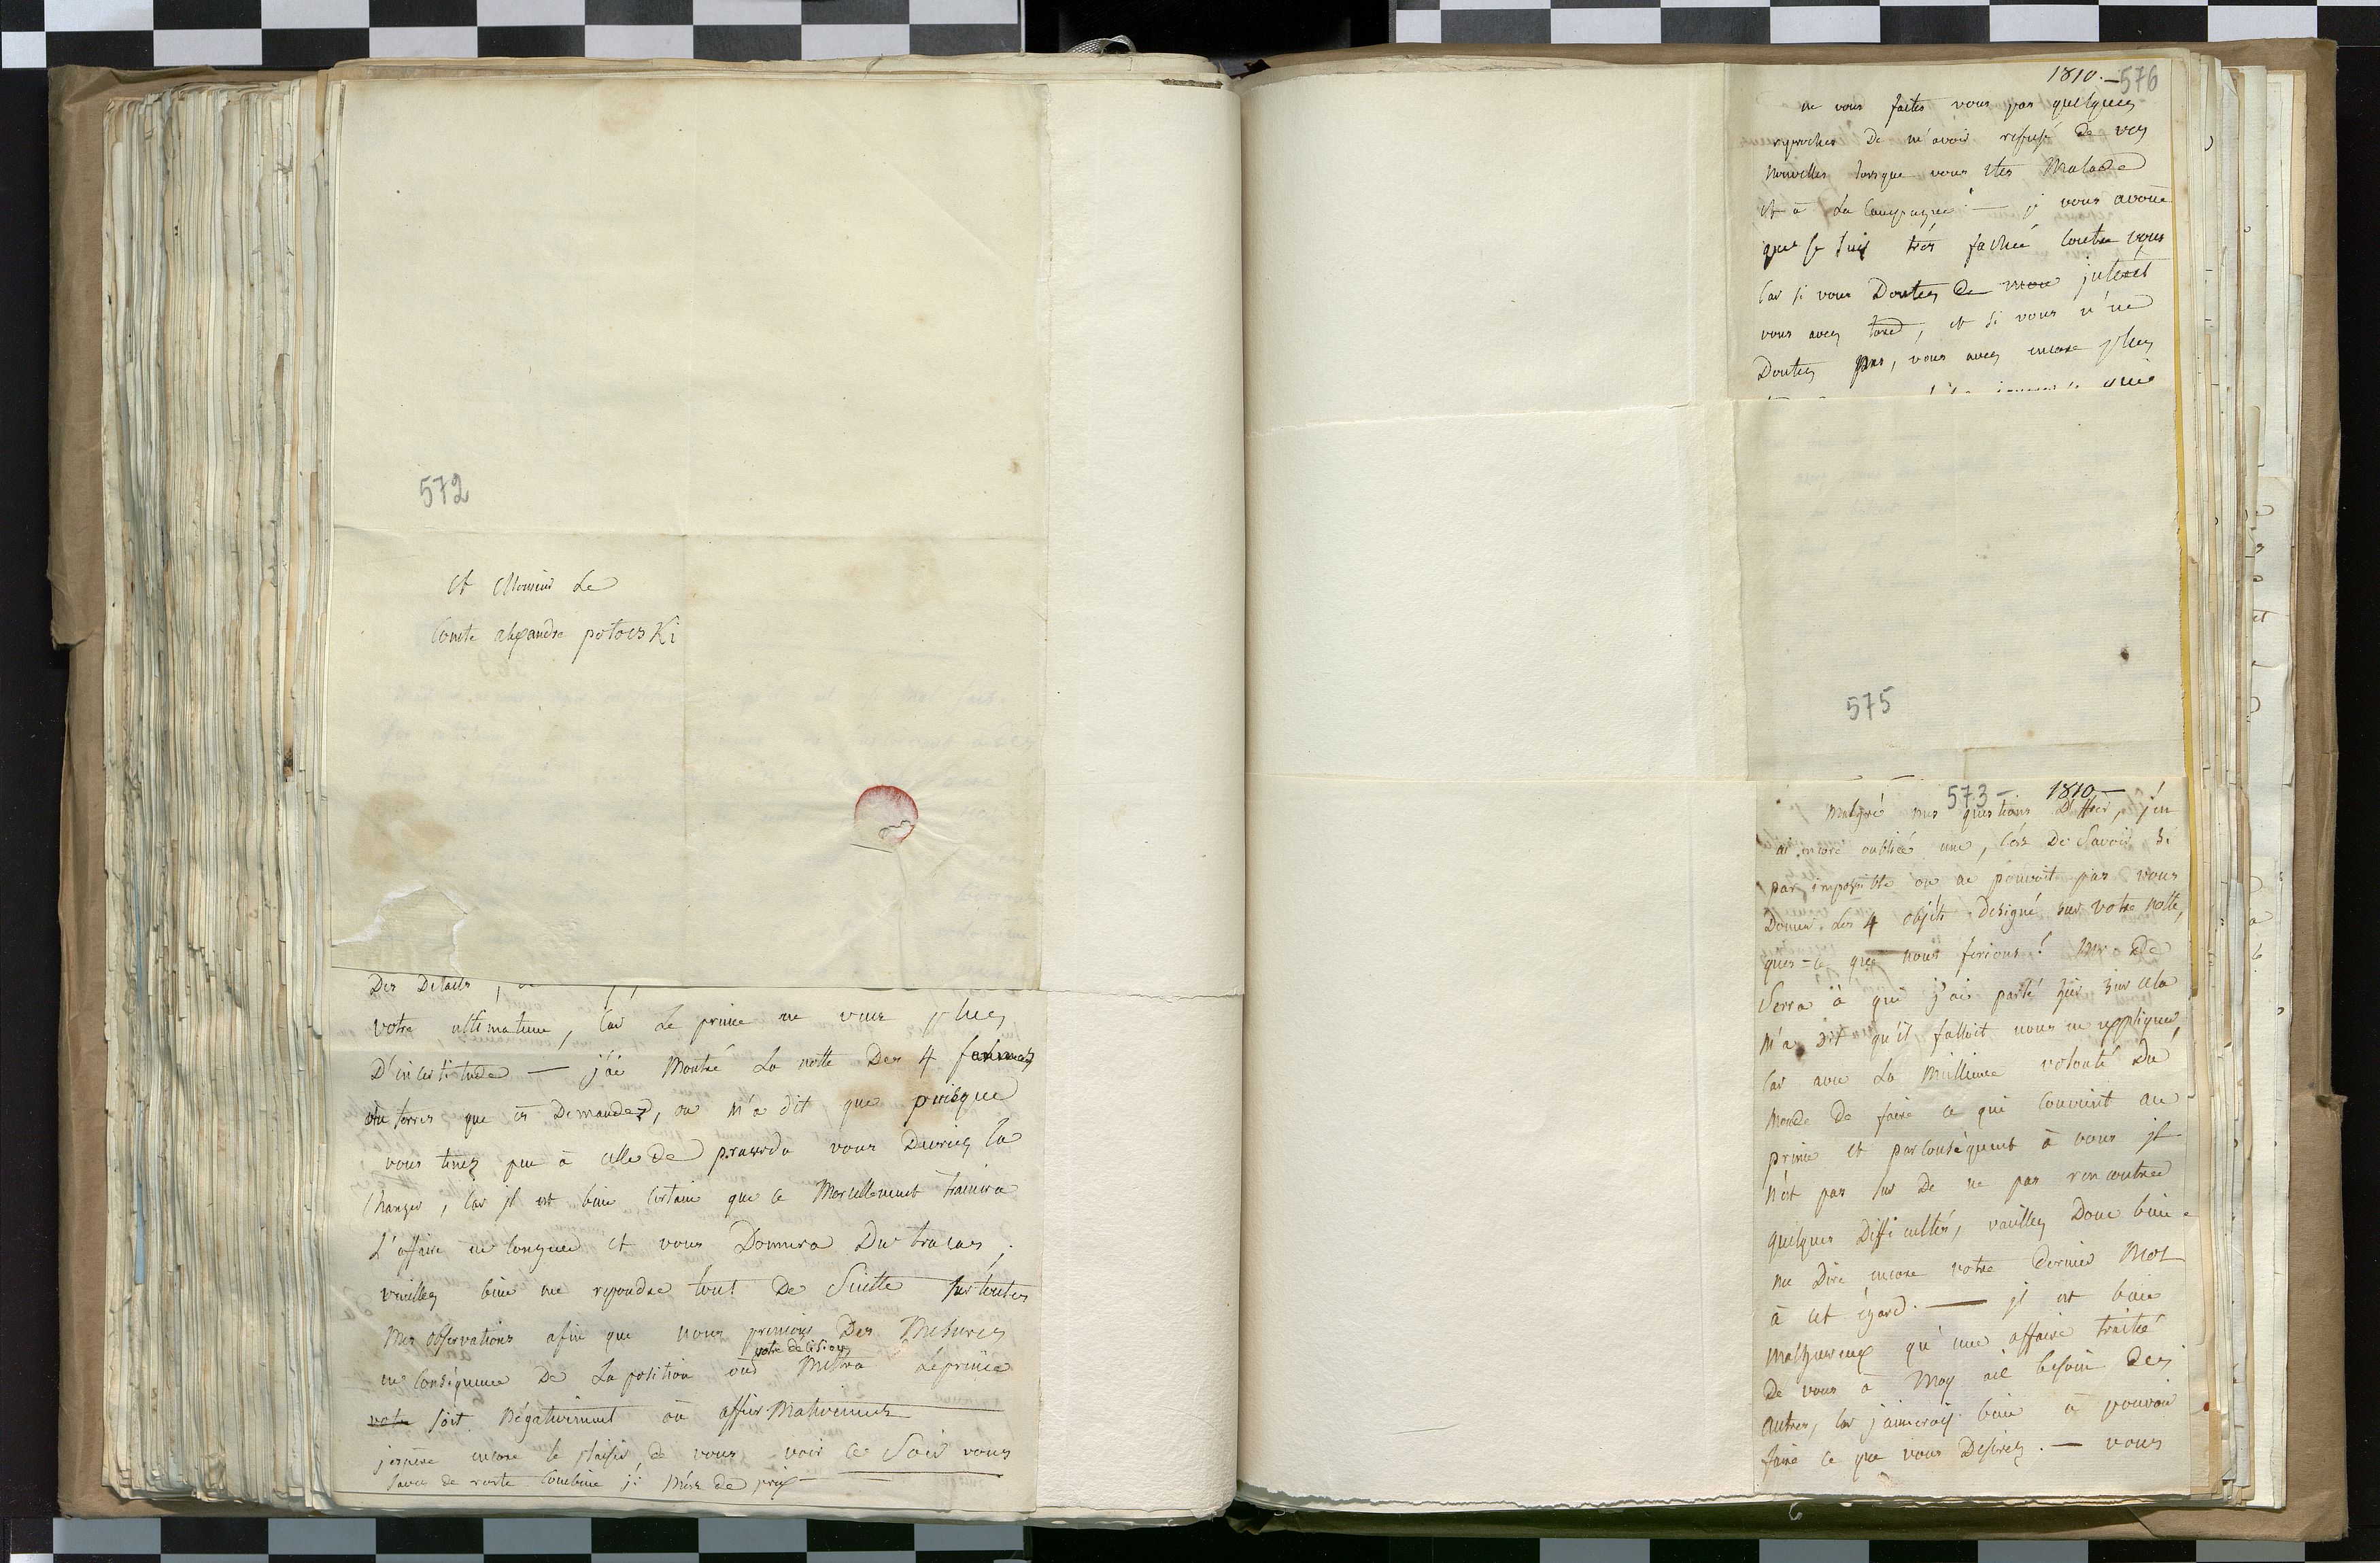 572
et Monsieur Le
Comte alexandre potocski
Des Details,
votre ultimatum, Car Le prince ne veut plus
D'incertitude — j'ai Montré La notte Des 4
de terres que Demandez, on m'a dit que puisque
vous tenez peu à celle de prawda vous Devriez la
Changer, Car jl est bien Certain que ce Morcellement trainera
L'affaire en longueur et vous Donnera Du tracas;
veuillez bien me repondre tout De Suitte sur toutes
Mes Observations afin que nous prenions Des Mesures
en Conséquence De La position où votre décision Mettra Le prince
votre soit Négativement ou affirmativement
j'espere encore le plaisir de vous voir ce Soir vous
savez de reste Combien j'i méts de prix —
1810. — 576
ne vous faites vous pas quelques
reproches De m'avoir refusé De vos
Nouvelles lorsque vous étes Malade
et à La Campagne? — je vous avoue
que je suis très fachée Contre vous
Car si vous Doutez De mon jnterêt
vous avez tord, et si vous n'en
Doutez pas, vous avez encore plus
575
573 — 1810 —
Malgré mes questions D'Hier, j'en
ai encore oubliée une, c'ést De Savoir si
par impossible on ne pouvoit pas vous
Donner Les 4 objéts designé sur votre notte,
ques-ce que nous ferions? Mr De
Serra à qui j'ai parlé hier sur cela
m'a Dit qu'il falloit nous en expliquer,
Car avec La Meilleure volonté Du
Monde De faire ce qui Convient au
prince et par Conséquent à vous jl
n'est pas sur De ne pas rencontrer
quelques Difficultés, veuillez Donc bien
me Dire encore votre Dernier Mot
à cet égard. — jl est bien
malheureux qu'une affaire traitée
De vous à Moy aie besoin Des
autres, Car j'aimerais bien à pouvoir
faire ce que vous Desirez. — vous